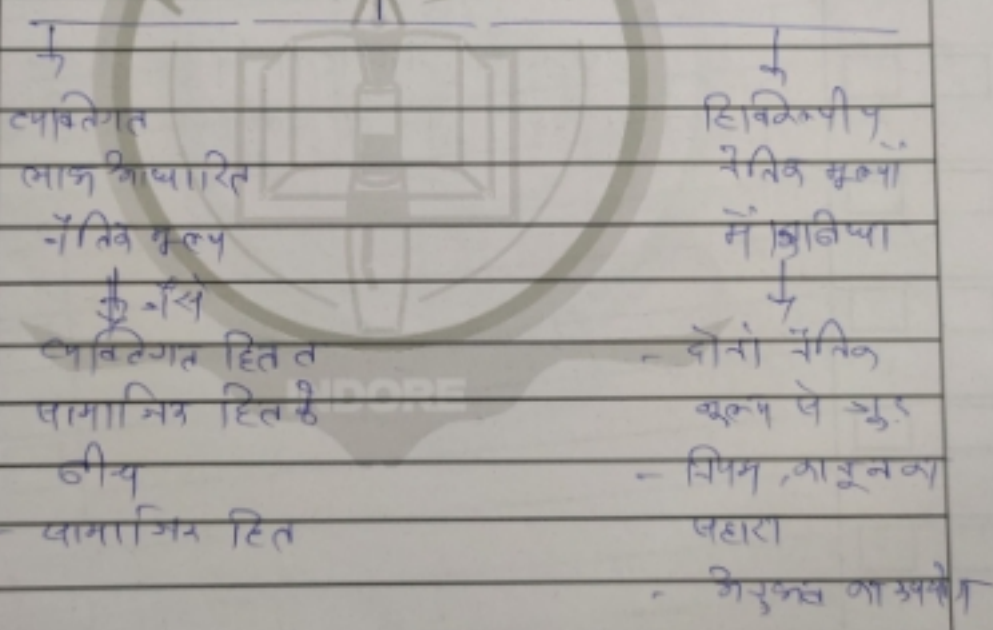 व्यक्तिगत
लाभ आधारित
नैतिक मूल्य
जैसे
व्यक्तिगत हित व
सामाजिक हित के
बीच
- सामाजिक हित
द्विविकल्पीय
नैतिक मूल्यों
में दुविधा
- दोनों नैतिक
मूल्य से जुड़े
- नियम, कानून का
सहारा
- का उपयोग
INDORE